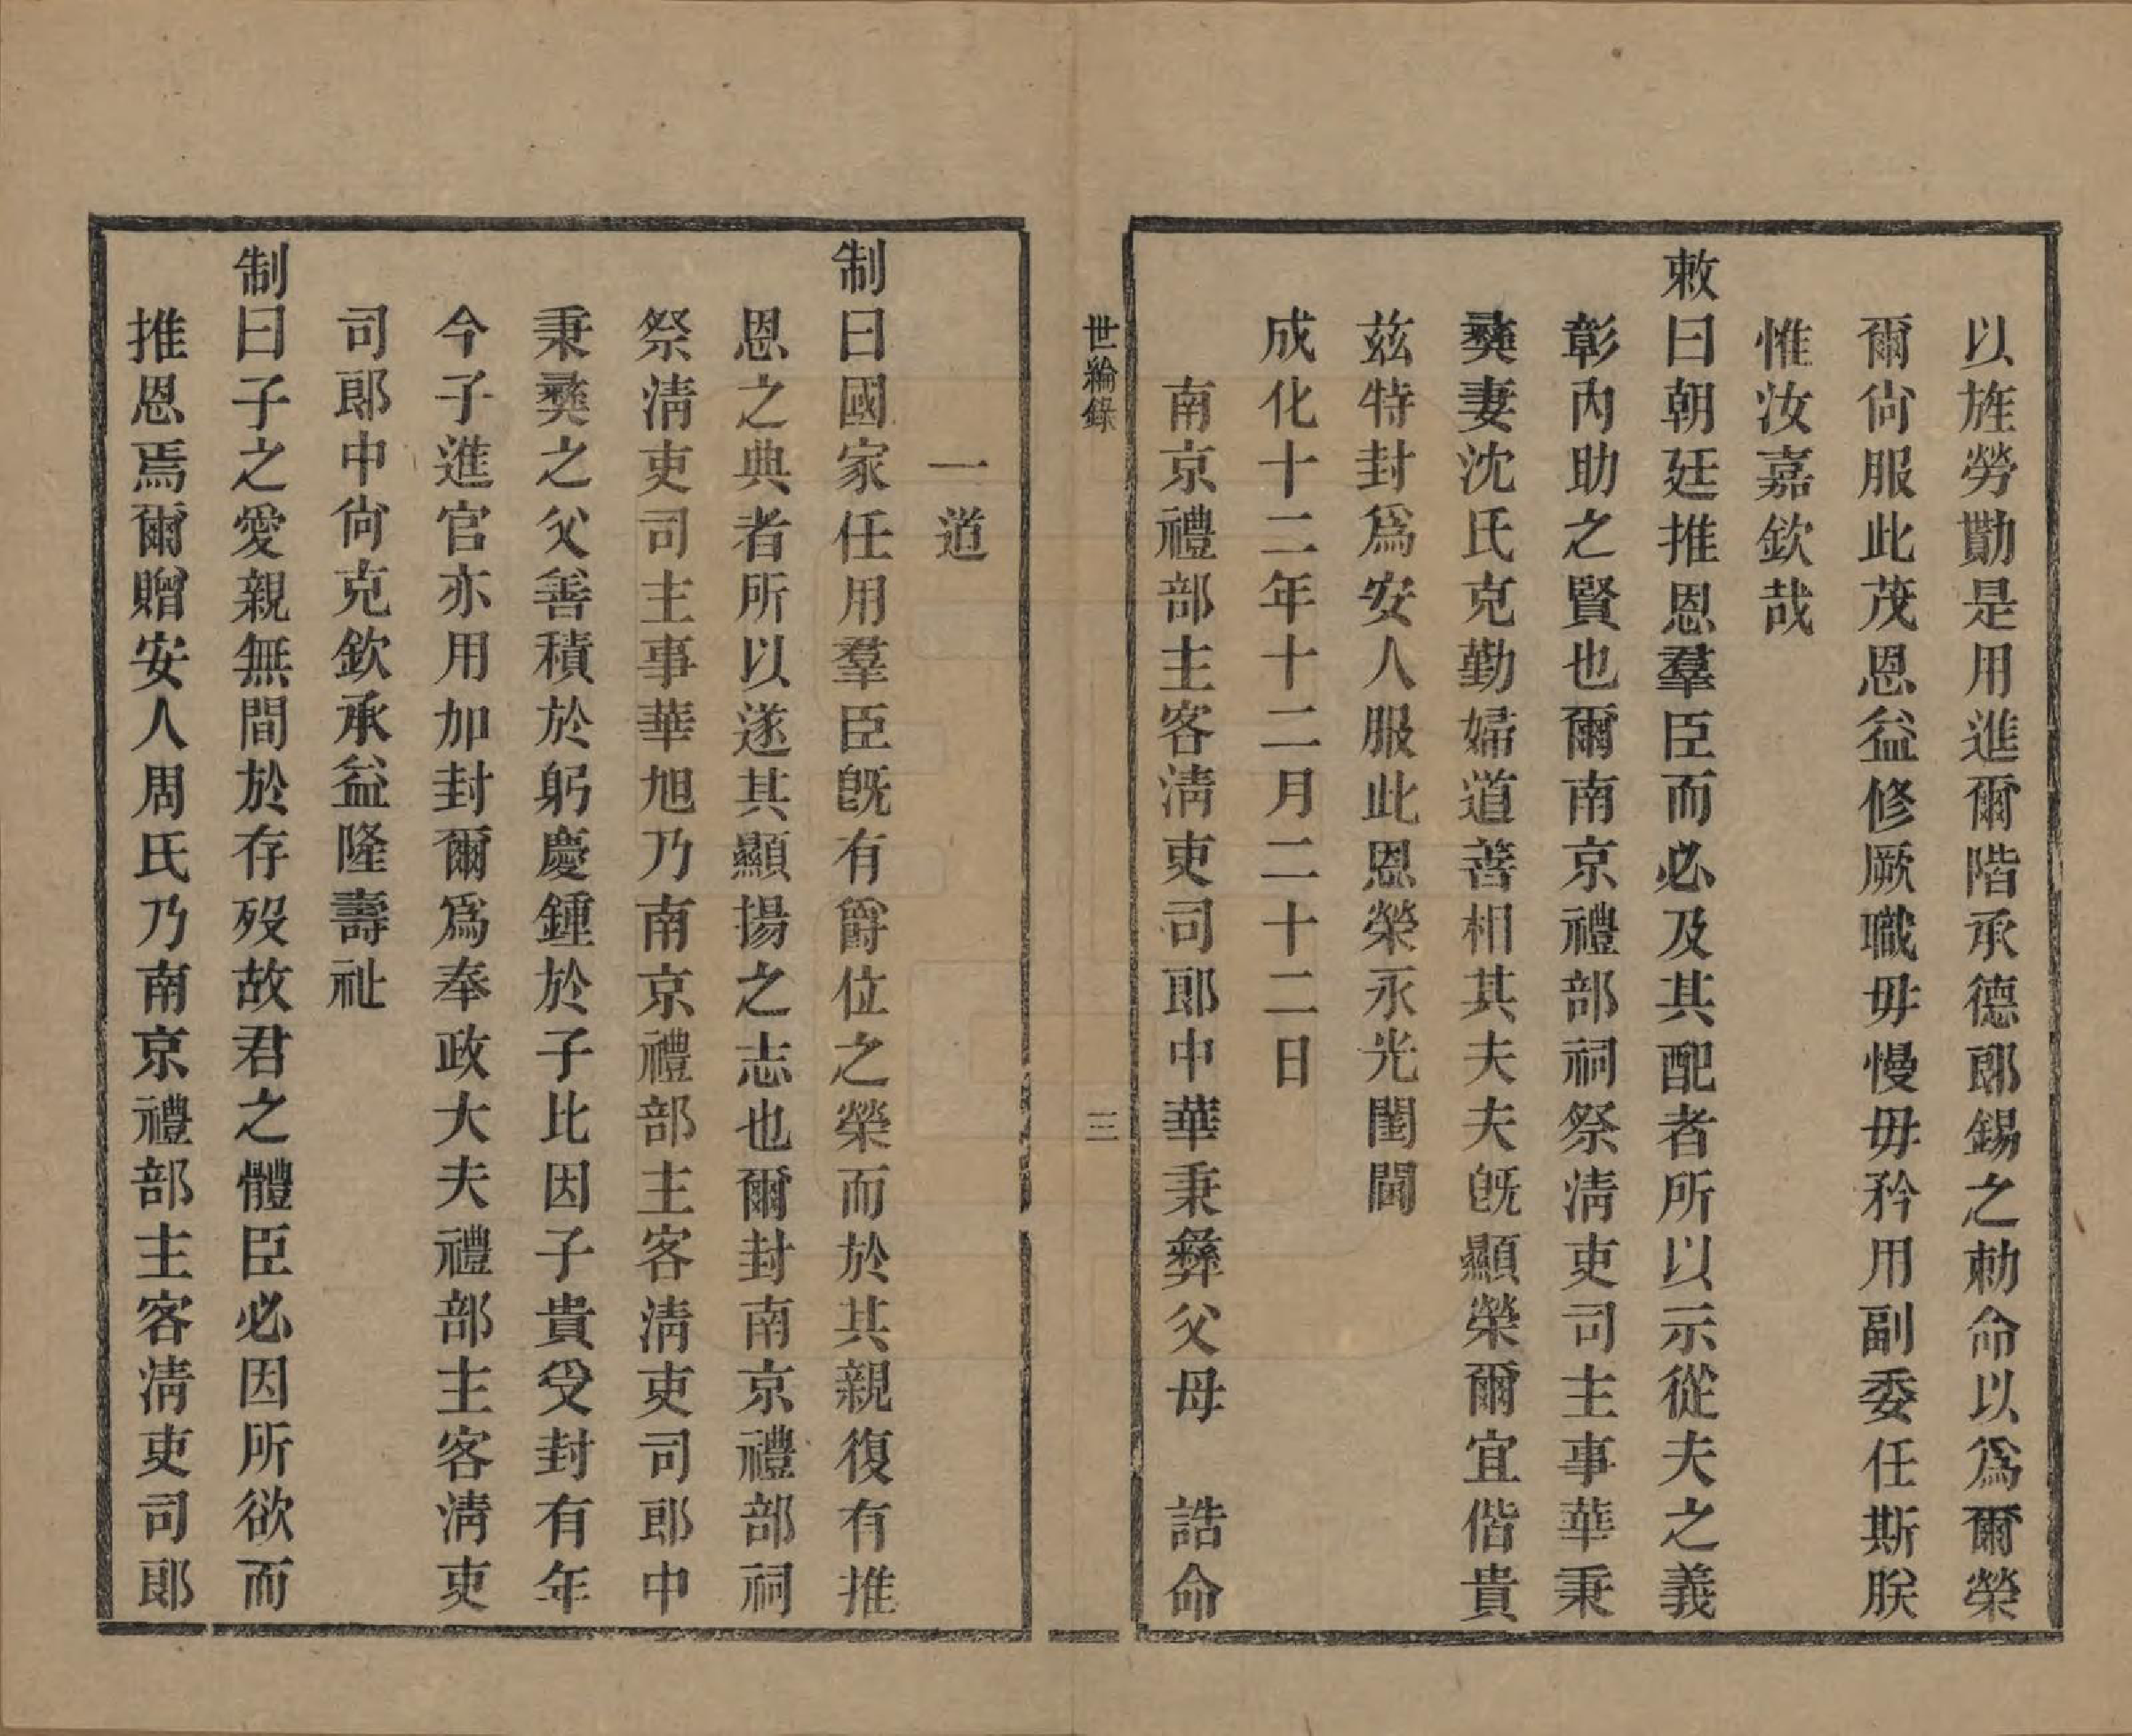 以旌勞勩是用進爾階承德郎錫之勅命以爲爾榮
爾尙服此茂恩益修厥職毋慢毋矜用副委任斯朕
惟汝嘉欽哉
敕曰朝廷推恩羣臣而必及其配者所以示從夫之義
彰內助之賢也爾南京禮部祠祭淸吏司主事華秉
彝妻沈氏克勤婦道善相其夫夫旣顯榮爾宜偕貴
茲特封爲安人服此恩榮永光閨閫
成化十二年十二月二十二日
南京禮部主客淸吏司郎中華秉彝父母　誥命
世綸錄
三
一道
制曰國家任用羣臣旣有爵位之榮而於其親復有推
恩之典者所以遂其顯揚之志也爾封南京禮部祠
祭淸吏司主事華旭乃南京禮部主客淸吏司郎中
秉彝之父善積於躬慶鍾於子比因子貴受封有年
今子進官亦用加封爾爲奉政大夫禮部主客淸吏
司郎中尙克欽承益隆壽祉
制曰子之愛親無間於存歿故君之體臣必因所欲而
推恩焉爾贈安人周氏乃南京禮部主客淸吏司郎